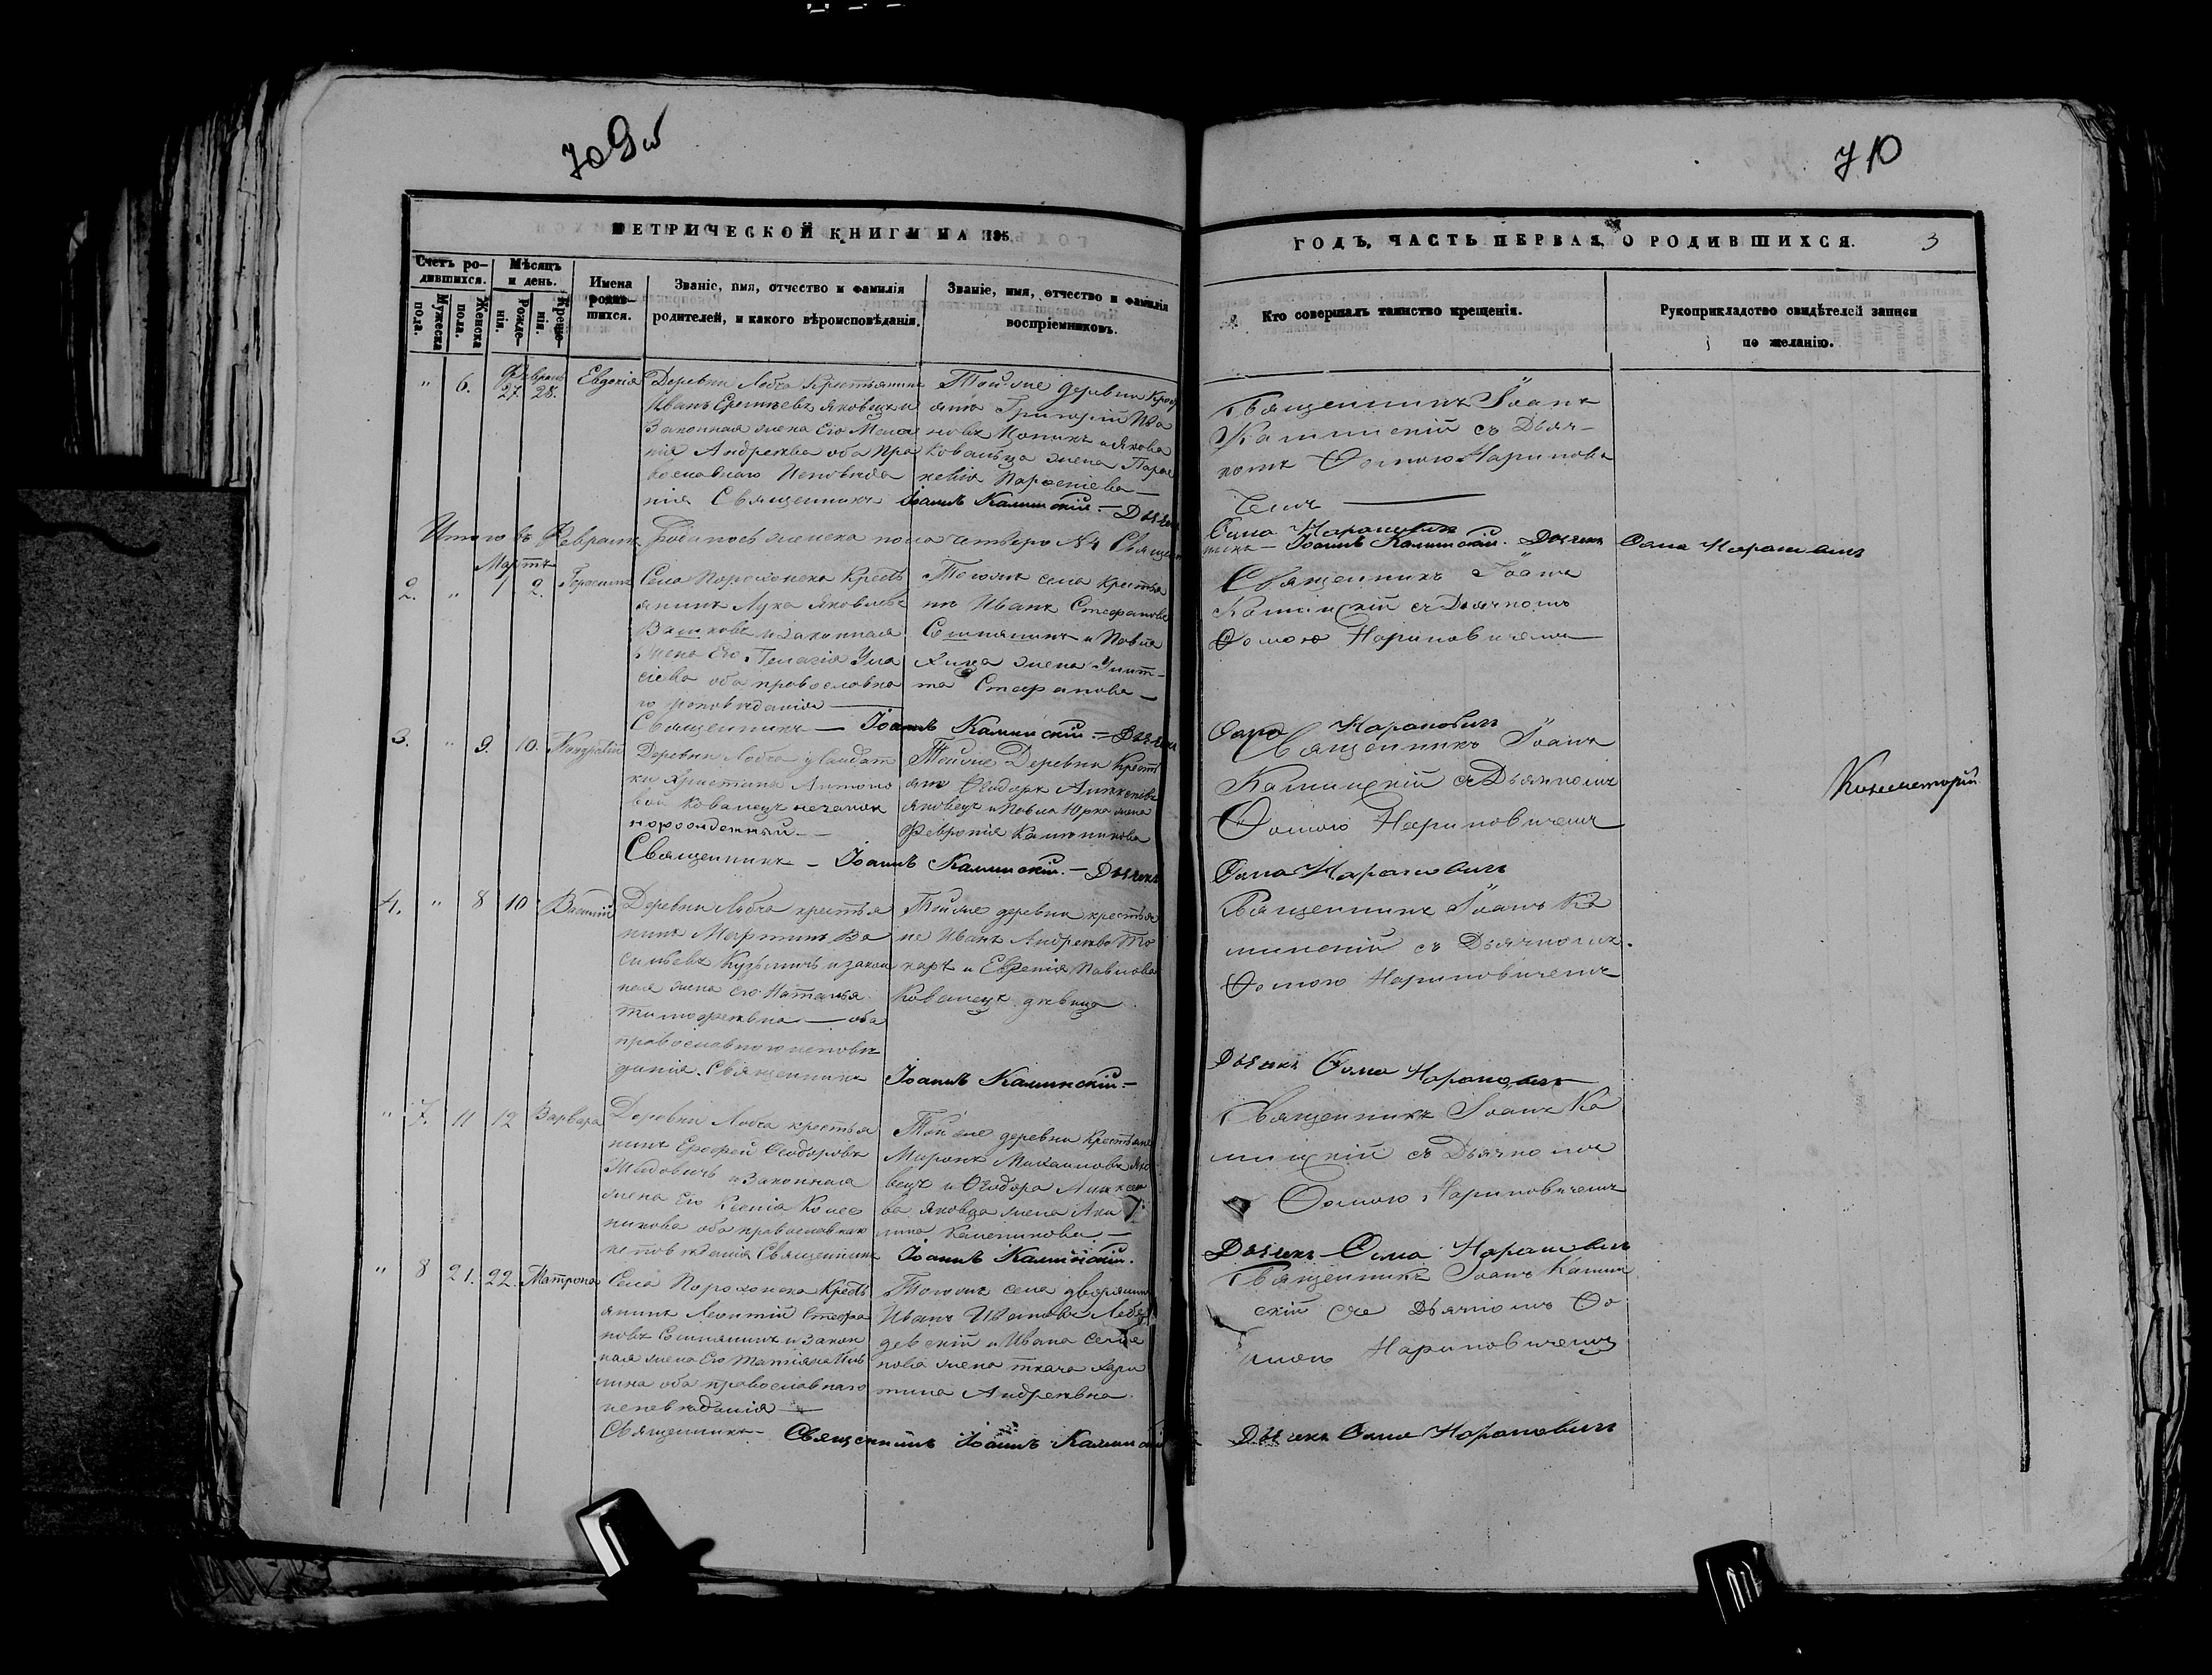 709 об
710
МЕТРИЧЕСКОЙ КНИГИ НА 185
ГОДЪ, ЧАСТЬ ПЕРВАЯ, О РОДИВШИХСЯ.
3
Счетъ ро-
дившихся.
Мужеска
пола.
Женска
пола.
Мѣсяцъ
и день.
Рожде-
нія.
Креще-
нія.
Имена
родив-
шихся.
Званіе, имя, отчество и фамилія
родителей, и какого вѣроисповѣданія.
Званіе, имя, отчество и фамилія
воспріемниковъ.
Кто совершалъ таинство крещенія.
Рукоприкладство свидѣтелей записи
по желанію.
" 6. Февраль 27. 28. Евдокія
Деревни Лобча Крестьянинъ
Иванъ Яковецъ и
Законная жена Его Мела
нія Андреева оба Пра
вославнаго Исповѣда
нія Священникъ Іоаннъ Каминскій. — Дьячекъ
Той-же деревни Крест
янъ Григорій Ива
новъ и Якова
Ковальца жена Парас
кевія
Священникъ Іоаннъ
Каминскій съ Дьяч-
комъ Ѳомою Нарнови
чемъ
Ѳома Нарановичъ
Итого въ Февралѣ Родилось женска пола четверо № 4 Священ
никъ — Іоаннъ Каминскій. Дьячекъ Ѳома Нарановичъ
Мартъ
2. " 1. 2. Герасимъ
Села Порохонска Кресть
янинъ Лука Яковлевъ
и законная
жена Его Пелагія Ула
сіева оба православна
го исповѣданія
Священникъ — Іоаннъ Каминскій. — Дьячекъ
Тогожъ села крестья
нъ Иванъ Стефановъ
и Павла
жена Улит-
та Стефанова —
Священникъ Іоаннъ
Каминскій съ Дьячкомъ
Ѳомою Нариновичемъ
Ѳома Нарановичъ
3. " 9. 10.
Деревни Лобча у Салдат
ки Христины Антоно
вой Ковалецъ
рожденный —
Священникъ — Іоаннъ Каминскій. — Дьячекъ
Тойже Деревни Кресть
янъ Ѳеодоръ
Яковецъ и Павла Юрка жена
Февронія
Священникъ Іоаннъ
Каминскій съ Дьячкомъ
Ѳомою Нариновичемъ
Ѳома Нарановичъ
4. " 8 10
Деревни Лобча крестья
нинъ Мартинъ Ва
сильевъ Кузьмичъ и закон
ная жена его Наталья
Тимофеевна — оба
православного исповѣ
данія. Священникъ Іоаннъ Каминскій —
Тойже деревни крестья
не Иванъ Андреевъ
и Евгенія Павлова
Ковалецъ дѣвица
Священникъ Іоаннъ Ка
минскій съ Дьячкомъ
Ѳомою Нариновичемъ
Дьячекъ Ѳома Нарановичъ
" 7. 11 12 Варвара
Деревни Лобча крестья
нинъ Ерофей Ѳеодоровъ
и Законная
жена Его Ксенія
оба православнаго
исповѣданія Священникъ Іоаннъ Каминскій.
Той же деревни Крестьяне
Миронъ Михаиловъ Яко
вецъ и Ѳеодора Алексѣе
ва Яковца жена Аку
лина
Священникъ Іоаннъ Ка
минскій съ Дьячкомъ
Ѳомою Нариновичемъ
Дьячекъ — Ѳома Нарановичъ
" 8 21. 22. Матрона
Села Порохонска Кресть
янинъ Леонтій Стефа
новъ и Закон
ная жена Его Татіана
оба православнаго
исповѣданія
Священникъ — Священникъ Іоаннъ Каминскій
Тогожъ села дворянинъ
Иванъ Ивановъ Лебе
девскій и Ивана
жена ткача Хари
тина Андреевна.
Священникъ Іоаннъ Камин
скій съ Дьячкомъ Ѳо
мою Нариновичемъ
Дьячекъ Ѳома Нарановичъ